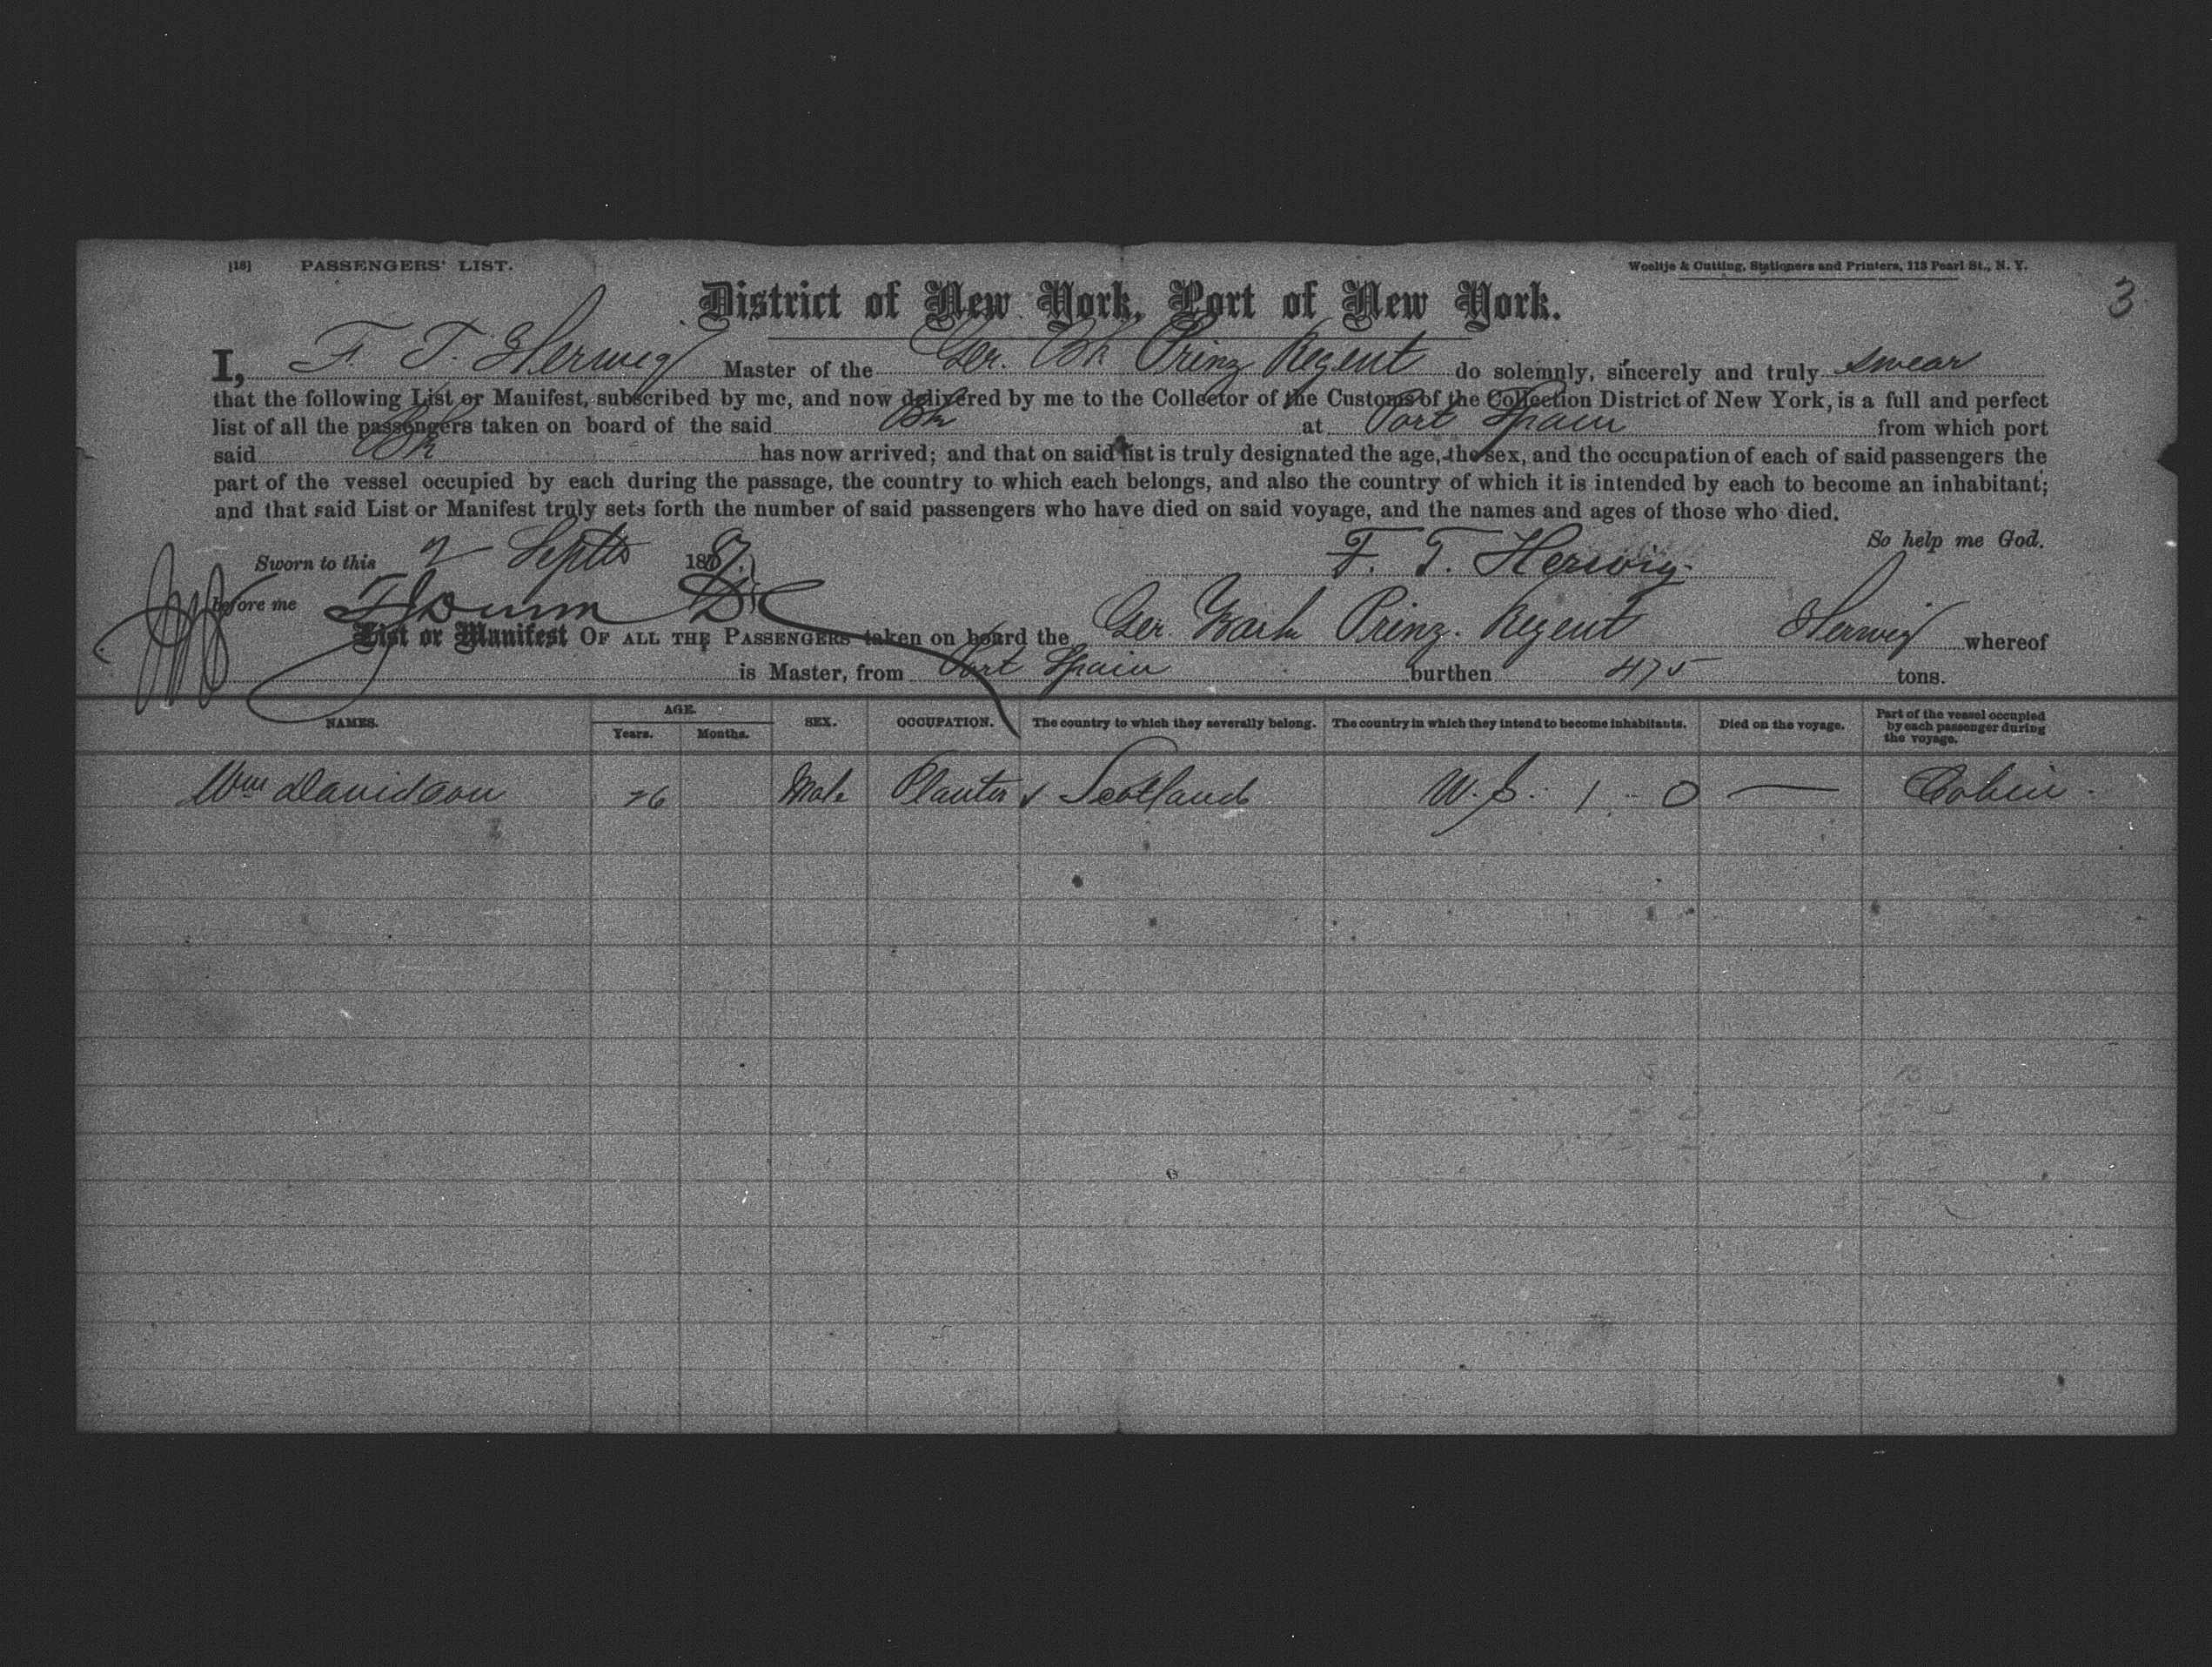 [16] PASSENGERS' LIST.
Woeltje & Cutting, Stationers and Printers, 113 Pearl St., N. Y.
3
District of New York, Port of New York.
I, F. T. Herwig Master of the Ger. Bk Prinz Regent do solemnly, sincerely and truly swear
that the following List or Manifest, subscribed by me, and now delivered by me to the Collector of the Customs of the Collection District of New York, is a full and perfect
list of all the passengers taken on board of the said Bk at Port Spain from which port
said Bk has now arrived; and that on said list is truly designated the age, the sex, and the occupation of each of said passengers the
part of the vessel occupied by each during the passage, the country to which each belongs, and also the country of which it is intended by each to become an inhabitant;
and that said List or Manifest truly sets forth the number of said passengers who have died on said voyage, and the names and ages of those who died.
So help me God.
Sworn to this 2 Septbr 187 F. T. Herwig.
before me
List or Manifest OF ALL THE PASSENGERS taken on board the Ger. Bark Prinz. Regent Herwig whereof
is Master, from Port Spain burthen 475 tons.
NAMES. AGE. Years. Months. SEX. OCCUPATION. The country to which they severally belong. The country in which they intend to become inhabitants. Died on the voyage. Part of the vessel occupied by each passenger during the voyage.
Wm Davidson 26 Male Planter Scotland 1 0 — Cabin.